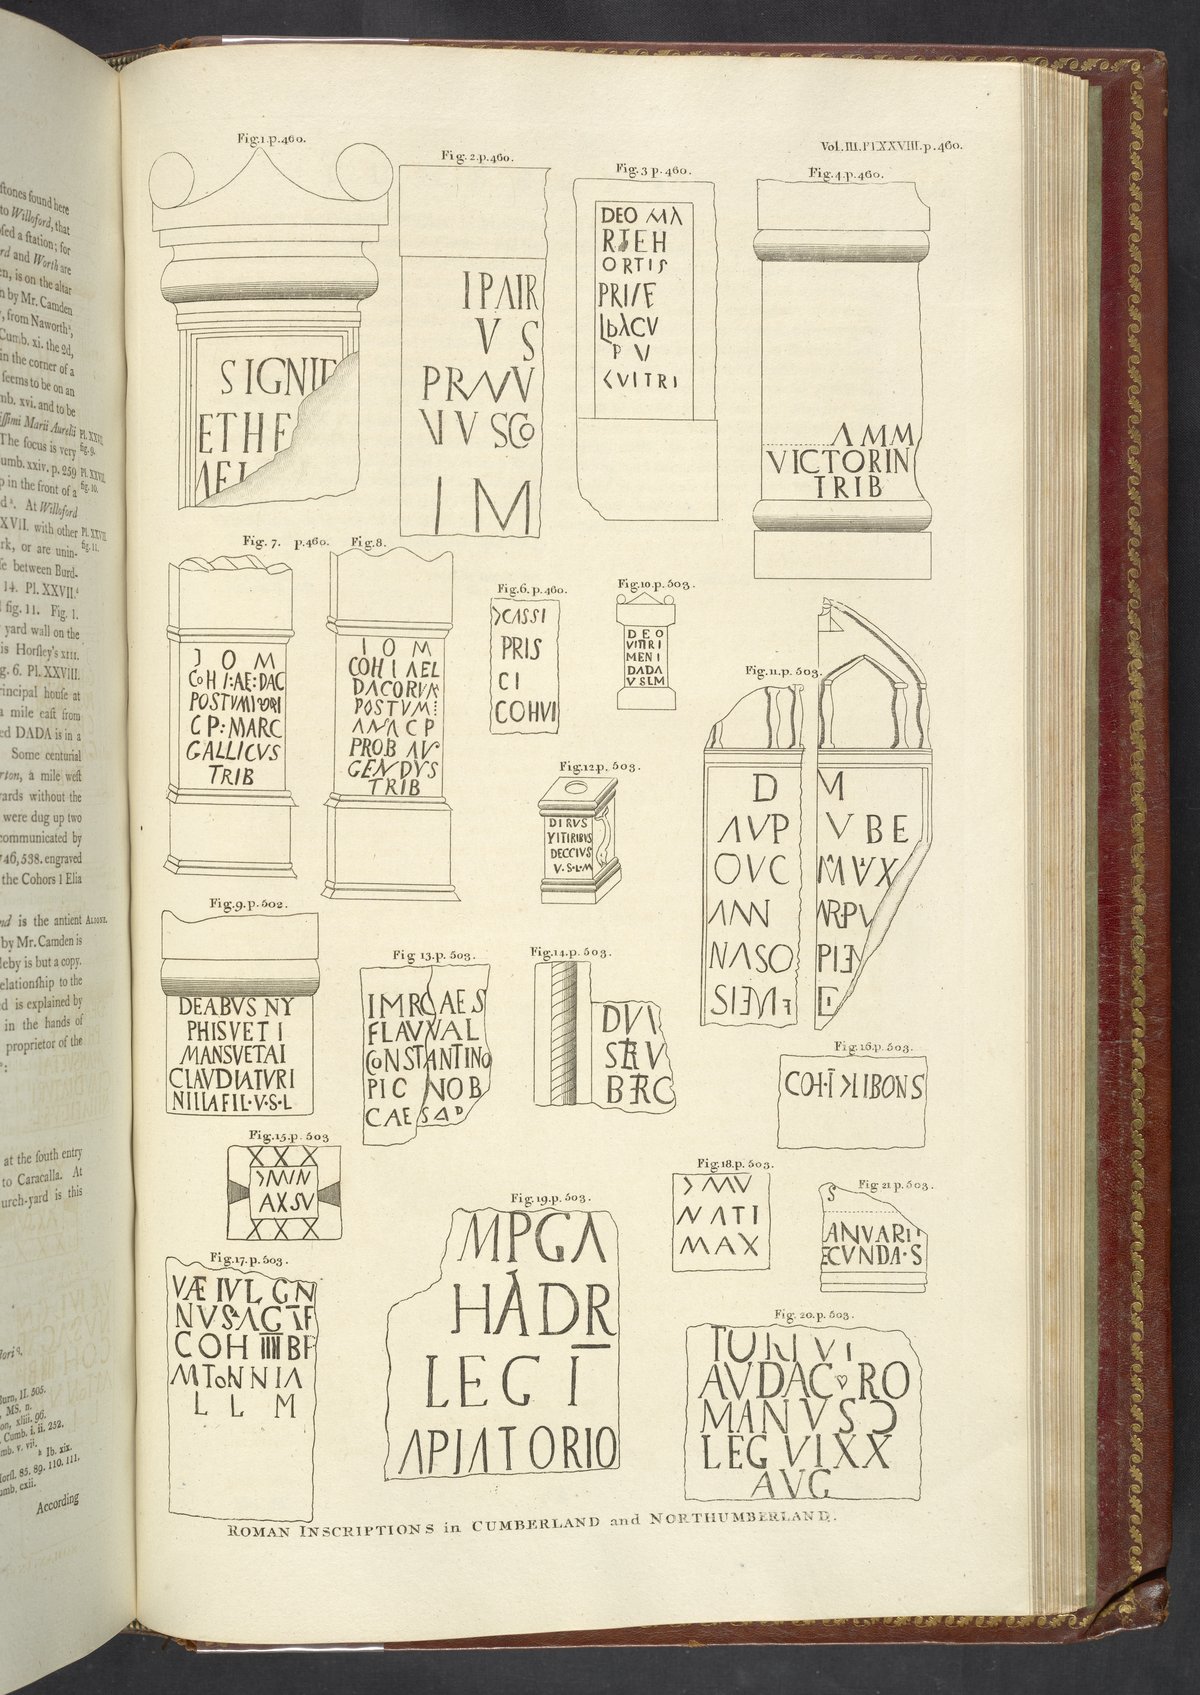 stones found here
to Willoford, that
sed a station; for
rd and Worth are
en, is on the altar
n by Mr. Camden
, from Naworth
Cumb. xi. the 2d,
in the corner of a
seems to be on an
mb. xvi. and to be
issimi Marii Aurelii
The focus is very
fig. 9.
umb. xxiv. p. 259
Pl. XXVII.
fig. 10.
p in the front of a
At Willoford
XVII. with other
Pl. XXVII.
rk, or are unin-
fig. 11.
se between Burd-
14. Pl. XXVII.
fig. 11. Fig. 1.
yard wall on the
is Horsley's XIII.
g. 6. Pl. XXVIII.
rincipal house at
a mile east from
ed DADA is in a
Some centurial
rton, a mile west
yards without the
were dug up two
communicated by
746, 538. engraved
the Cohors I Elia
nd is the antient
ALIONE.
by Mr. Camden is
leby is but a copy.
elationship to the
d is explained by
in the hands of
proprietor of the
at the south entry
to Caracalla. At
urch-yard is this
Burn, II. 505.
MS. n.
on, xliii. 96.
Cumb. i. ii. 252.
mb. v. vii.
Ib. xix.
Horsl. 85. 89. 110. 111.
umb. cxii.
According
Vol. III. Pl XXVIII. p. 460.
Fig. 1. p. 460.
SIGNIF
ETHE
AEL
Fig. 2. p. 460.
IPAIR
V S
IVVSCo
IM
Fig. 3 p. 460.
DEO MA
RTEH
ORTIS
CVITRI
Fig. 4. p. 460.
AMM
VICTORIN
TRIB
Fig. 7. p. 460.
I O M
CoH I:AE:DAC
C P:MARC
GALLICVS
TRIB
Fig. 8.
I O M
COH I AEL
DACORVM
POSTVMI
ANA C P
PROB AV
GENDVS
TRIB
Fig. 6. p. 460.
>CASSI
PRIS
CI
COHVI
Fig. 10. p. 503.
DEO
VITIRI
MENI
DADA
VSLM
Fig. 11. p. 503.
D M
AVP V BE
OVC
ANN
NASO
Fig. 12. p. 503.
DIBVS
VITIRIBVS
DECCIVS
V·S·L·M
Fig. 9. p. 502.
DEABVS NY
PHISVETI
MANSVETAI
CLAVDIATVRI
NILLAFIL·V·S·L
Fig 13. p. 503.
IMRCAES
FLAVVAL
CoNSTANTINO
PIC NOB
CAES
Fig. 14. p. 503.
DVI
Fig. 16. p. 503.
COH·I >LIBONS
Fig. 15. p. 503
XXX
>MIN
AXSV
XXX
Fig. 18. p. 503.
>MV
NATI
MAX
Fig 21 p. 503.
S
ANVARI
ECVNDA·S
Fig. 19. p. 503.
MPGA
HADR
LEG I
APIATORIO
Fig. 17. p. 503.
VÆ IVL GN
COH IIII BR
MToNNIA
L L M
Fig. 20. p. 503.
AVDAC RO
MANVS Ɔ
LEG VIXX
AVG
ROMAN INSCRIPTIONS in CUMBERLAND and NORTHUMBERLAND.